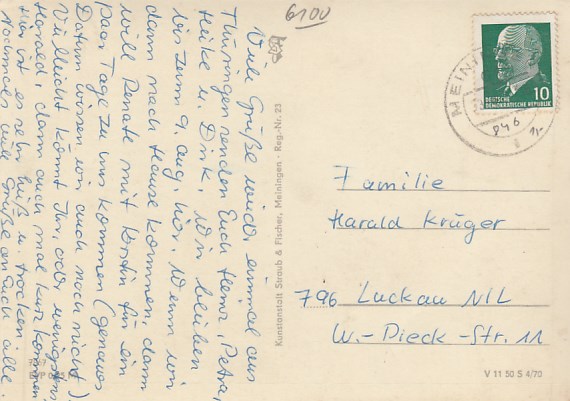 6100
Viele Grüße wieder einmal aus
Thüringen senden Euch Heinz, Petra,
Heike u. Dirk. Wir bleiben
bis zum 9. Aug. hier. Wenn wir
dann nach Hause kommen, dann
will Renate mit Kerstin für ein
paar Tage zu uns kommen (genaues
Datum wissen wir auch noch nicht)
Vielleicht kommt Ihr, oder wenigstens
Harald, dann auch mal kurz kommen
Hier ist es sehr heiß u. trocken.
Nochmals viele Grüße an Euch alle.
Kunstanstalt Straub & Fischer, Meiningen · Reg.-Nr. 23
10
DEUTSCHE
DEMOKRATISCHE REPUBLIK
Familie
Harald Krüger
796 Luckau NIL
W.-Pieck-Str. 11
V 11 50 S 4/70